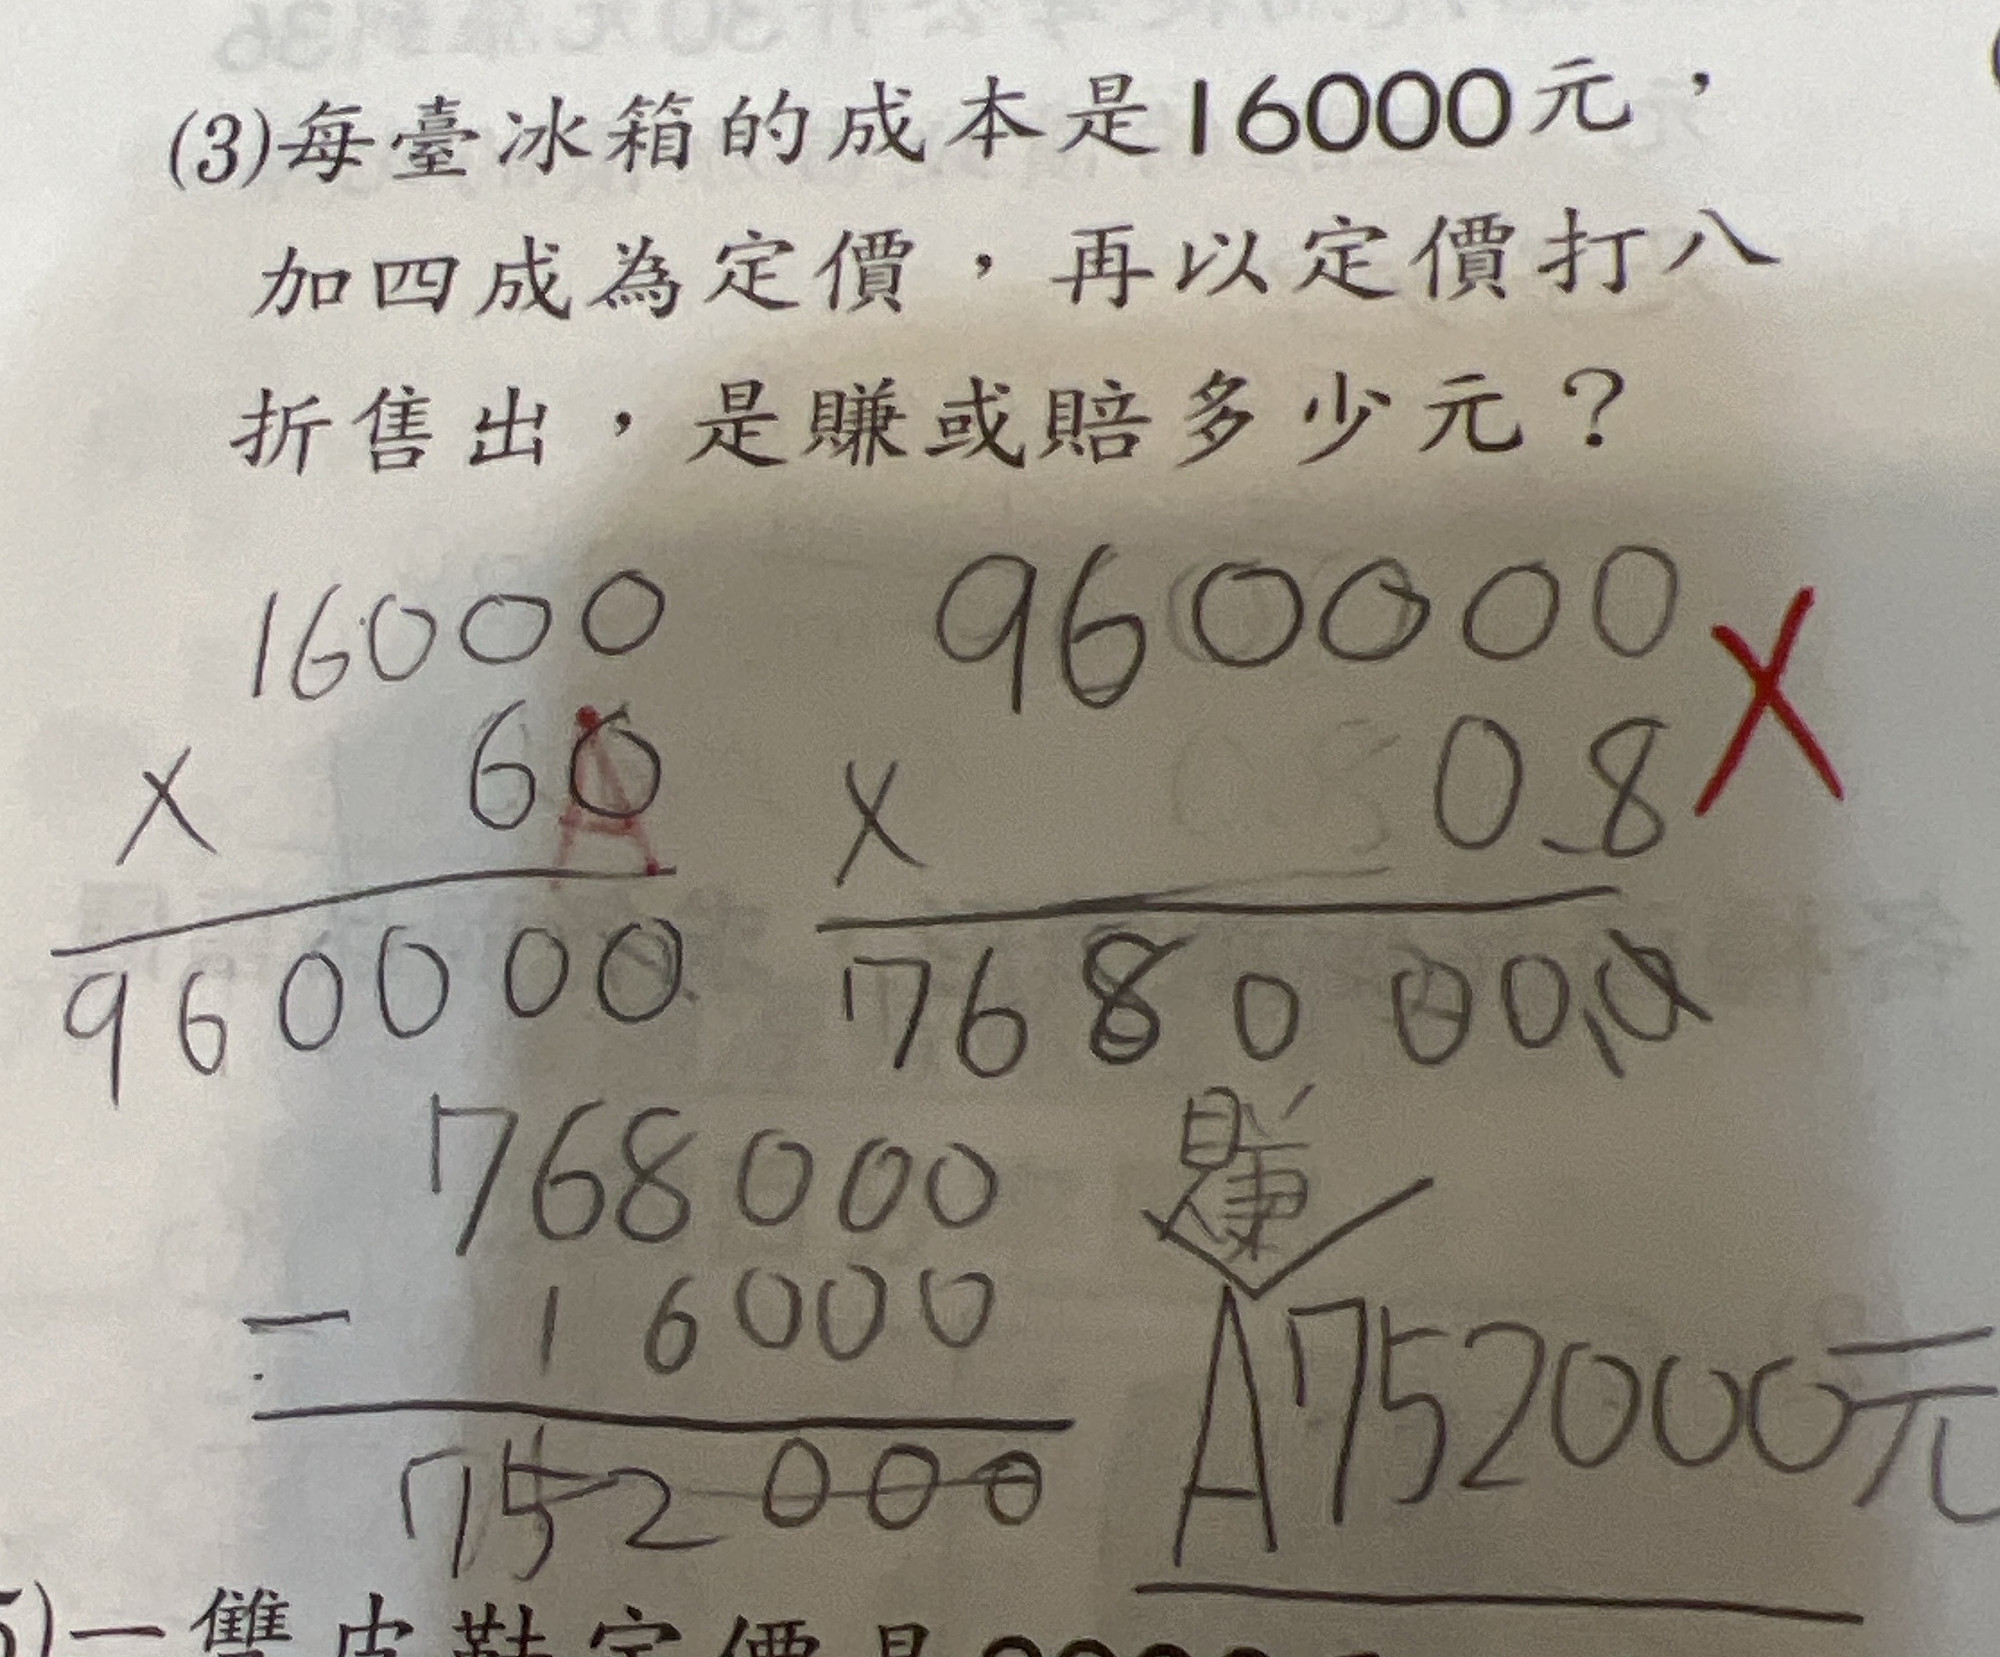 (3)每臺冰箱的成本是16000元，
加四成為定價，再以定價打八
折售出，是賺或賠多少元？
16000
× 60
960000
960000
× 0.8
768000.0
768000
- 16000
752000
賺
A 752000元
5)一雙皮鞋定價是